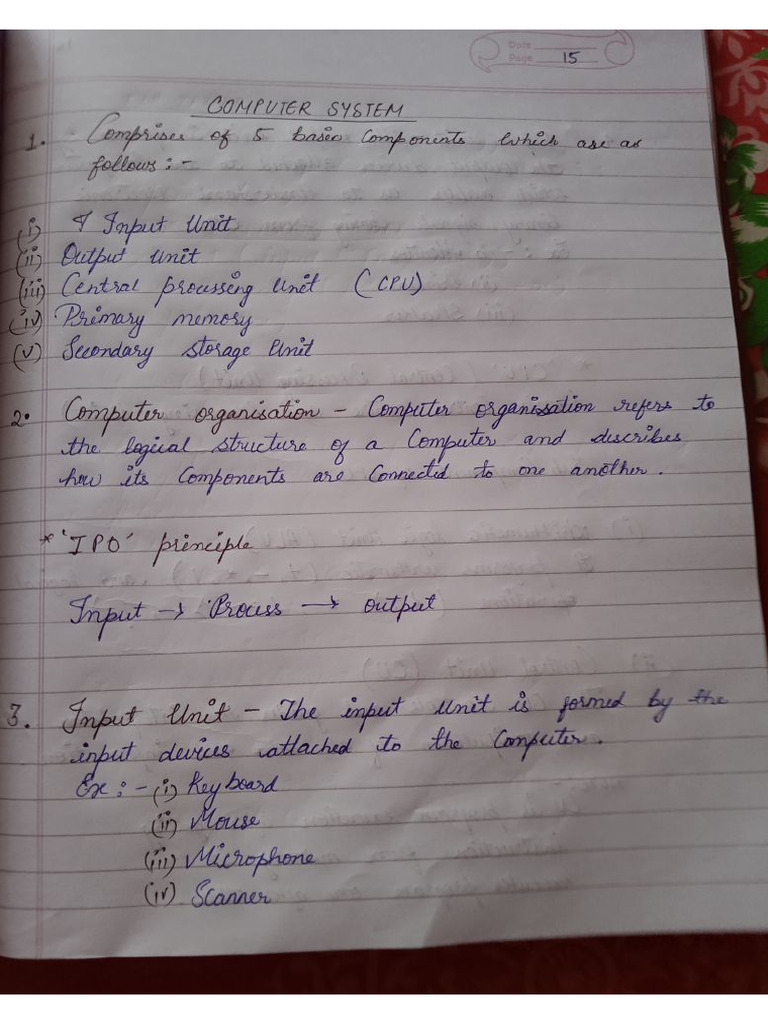 Date
Page 15
COMPUTER SYSTEM
1. Comprises of 5 basic components which are as
follows : -
(i) Input Unit
(ii) Output Unit
(iii) Central processing Unit (CPU)
(iv) Primary memory
(v) Secondary storage Unit
2. Computer organisation - Computer organisation refers to
the logical structure of a Computer and describes
how its Components are Connected to one another.
* 'IPO' principle
Input → Process → output
3. Input Unit - The input Unit is formed by the
input devices attached to the Computer.
Ex : - (i) Keyboard
(ii) Mouse
(iii) Microphone
(iv) Scanner